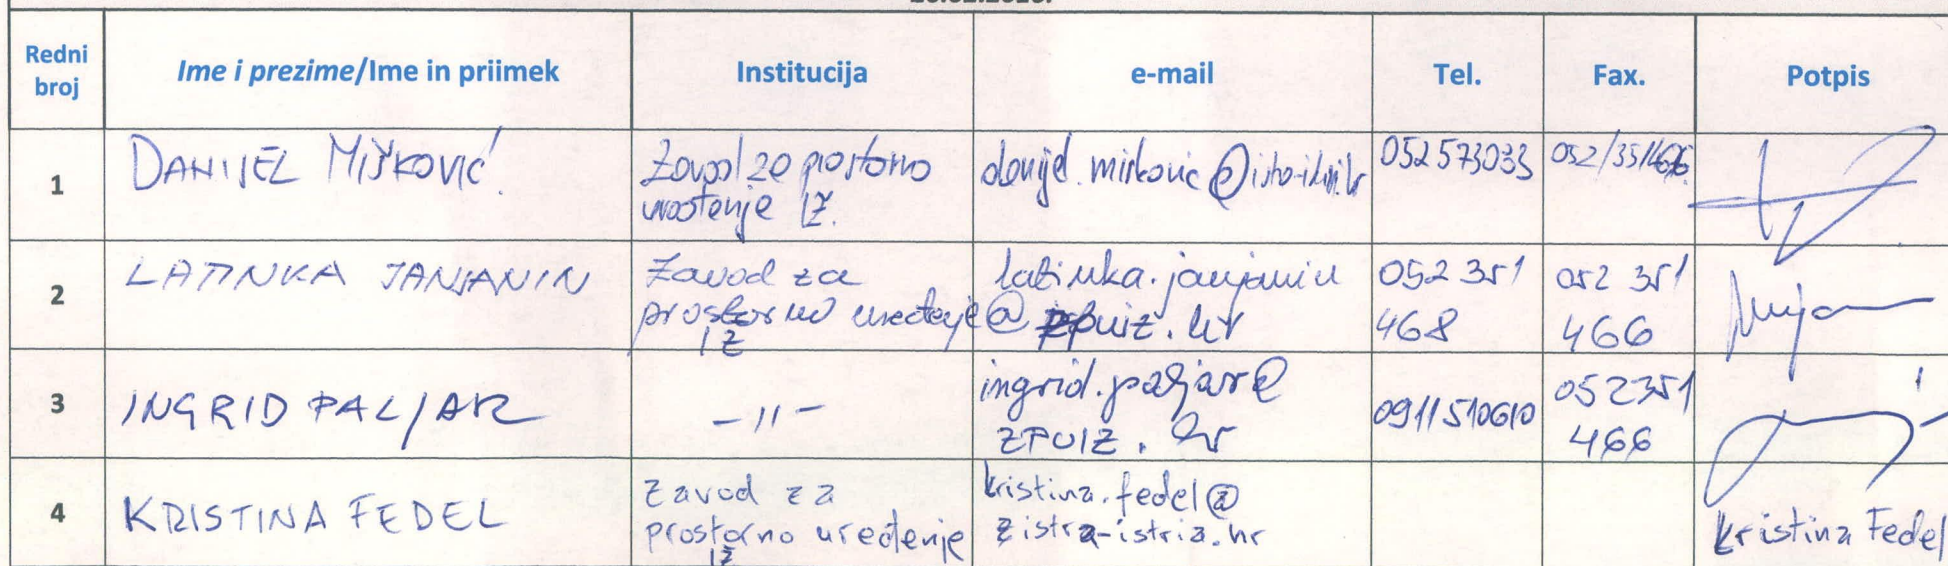 Redni broj Ime i prezime/Ime in priimek Institucija e-mail Tel. Fax. Potpis
1 DANIJEL MIŠKOVIĆ Zavod za prostorno uređenje IŽ. danijel.miskovic@istra-istria.hr 052573033 052/351466
2 LATINKA JANJANIN Zavod za prostorno uređenje IŽ latinka.janjanin@zpuiz.hr 052 351 468 052 351 466
3 INGRID PALJAR -11- ingrid.paljar@ZPUIZ.hr 0911510610 052351 466
4 KRISTINA FEDEL Zavod za prostorno uređenje IŽ kristina.fedel@istra-istria.hr Kristina Fedel